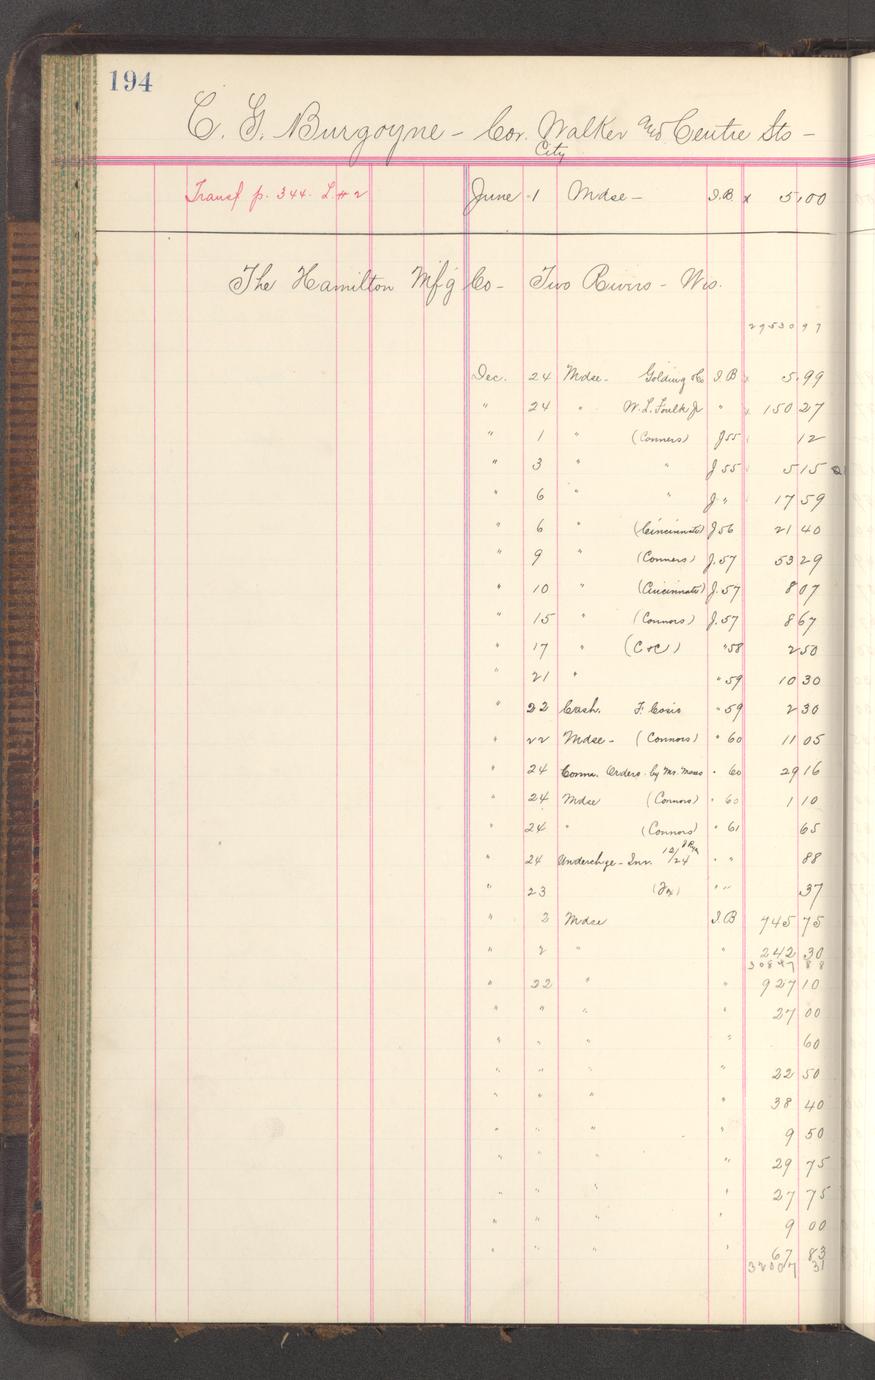 194
C. G. Burgoyne - Cor. Walker and Centre Sts -
City
Transf p. 344. L. # 2 June 1 Mdse - I.B. x 5.00
The Hamilton Mf'g Co - Two Rivers - Wis.
29530 97
Dec. 24 Mdse - Golding & Co I.B x 5.99
" 24 " W. L. Foulk Jr " x 150 27
" 1 " (Conners) J 55 12
" 3 " " J 55 5 15
" 6 " " J " 17 59
" 6 " (Cincinnati) J 56 21 40
" 9 " (Conners) J. 57 53 29
" 10 " (Cincinnati) J. 57 8 07
" 15 " (Connors) J. 57 8 67
" 17 " (C & C) " 58 2 50
" 21 " " 59 10 30
" 22 Cash. F. " 59 2 30
" 22 Mdse - (Connors) " 60 11 05
" 24 Comm. Orders by Mr. " 60 29 16
" 24 Mdse (Connors) " 60 1 10
" 24 " (Connors) " 61 65
" 24 Underchge - Inv. 12/24 " " 88
" 23 " " 37
" 2 Mdse I.B 745 75
" 2 " " 242 30
30847 88
" 22 " " 927 10
" " " " 27 00
" " " " 60
" " " " 22 50
" " " " 38 40
" " " " 9 50
" " " " 29 75
" " " " 27 75
" " " " 9 00
" " " " 67 83
32007 31